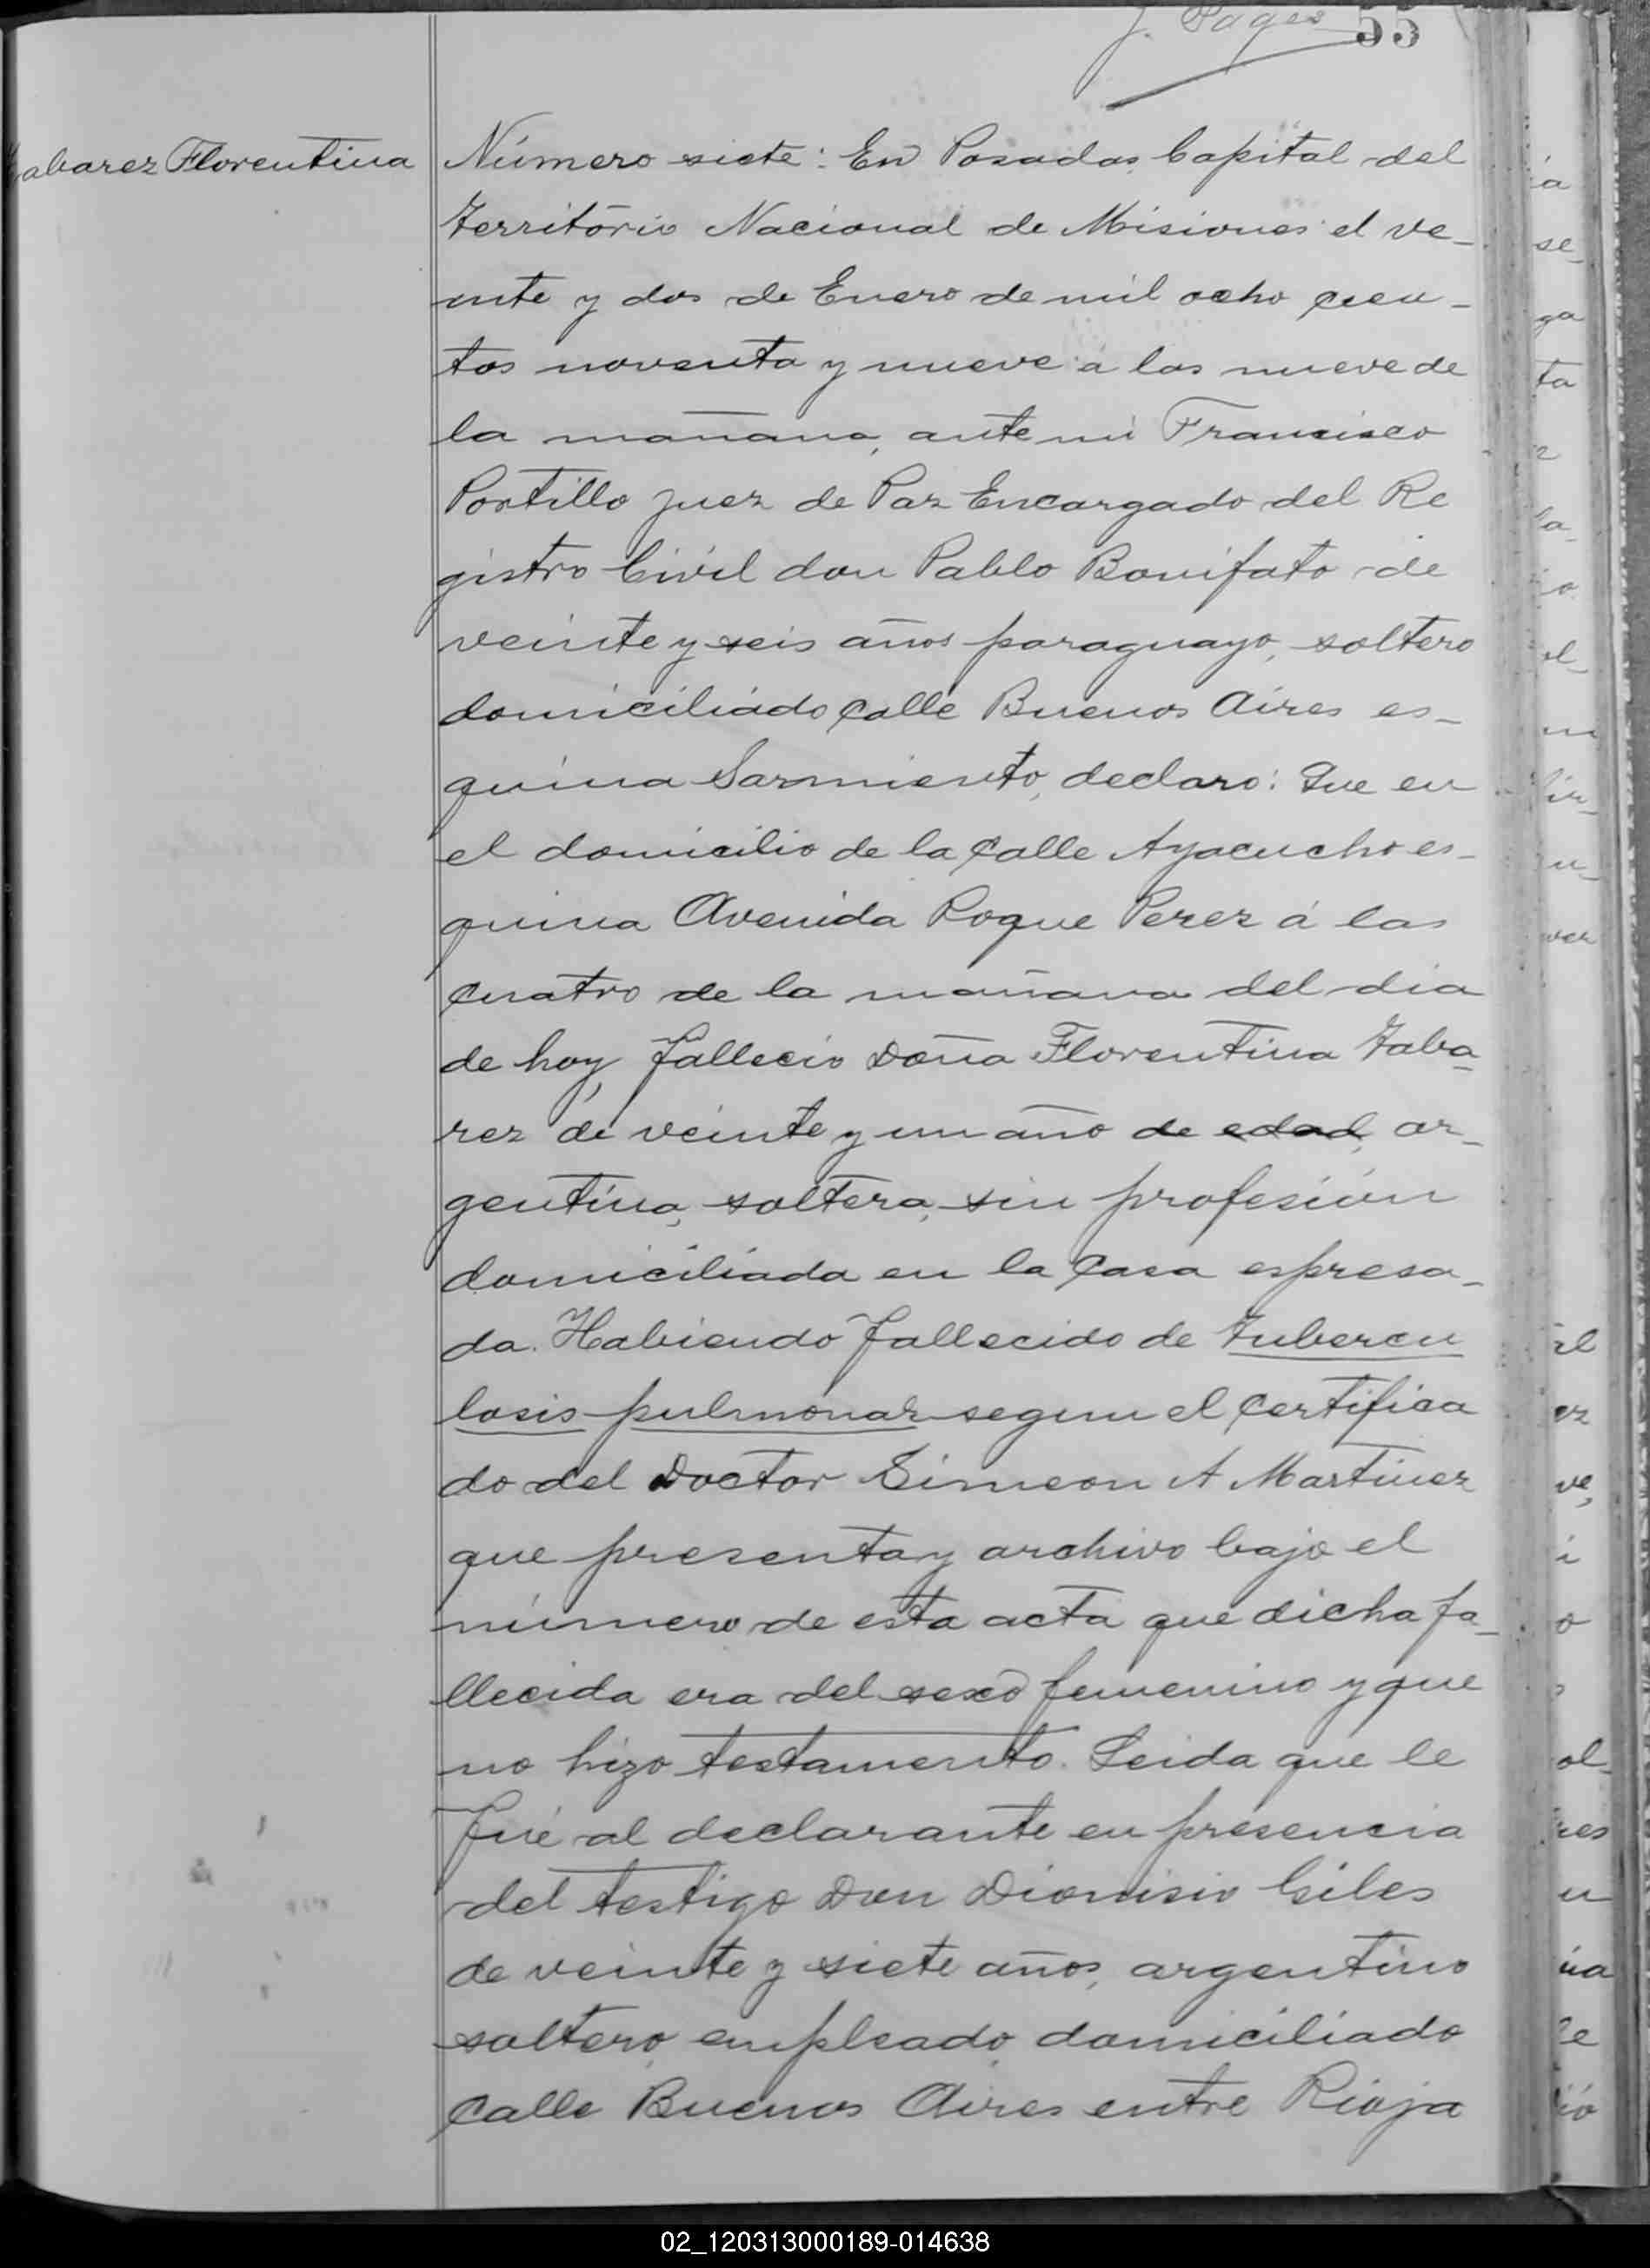 J. Pages 55
abarez Florentina
Número siete: En Posadas, Capital del
Território Nacional de Misiones el ve-
inte y dos de Enero de mil ocho cien-
tos noventa y nueve á las nueve de
la mañana, ante mi Francisco
Portillo Juez de Paz Encargado del Re
gistro Civil don Pablo Bonifato de
veinte y seis años paraguayo, soltero
domiciliado calle Buenos Aires es-
quina Sarmiento, declaro: Que en
el domicilio de la calle Ayacucho es-
quina Avenida Roque Perez á las
cuatro de la mañana del dia
de hoy, falleció Doña Florentina Taba-
rez de veinte y un año de edad, ar-
gentina, soltera, sin profesión
domiciliada en la casa espresa-
da. Habiendo fallecido de Tubercu
losis pulmonar segun el certifica
do del Doctor Simeon A Martinez
que presenta y archivo bajo el
número de esta acta que dicha fa-
llecida era del sexo femenino y que
no hizo testamento. Leida que le
fué al declarante en presencia
del testigo Don Dionisio Giles
de veinte y siete años, argentino
soltero, empleado, domiciliado
calle Buenos Aires entre Rioja
02_120313000189-014638